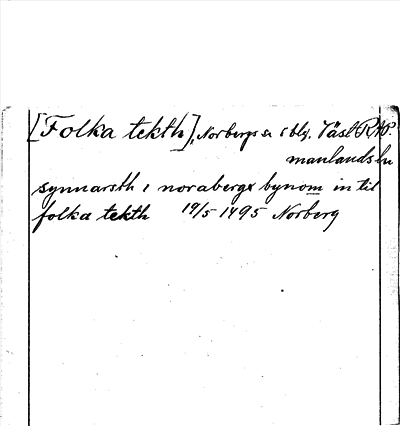 [Folka tekth], Norbergs sn o blg. Väsl RAP.
manlandshu
synnarsth i noraberge bynom in til
folka tekth 19/5 1495 Norberg